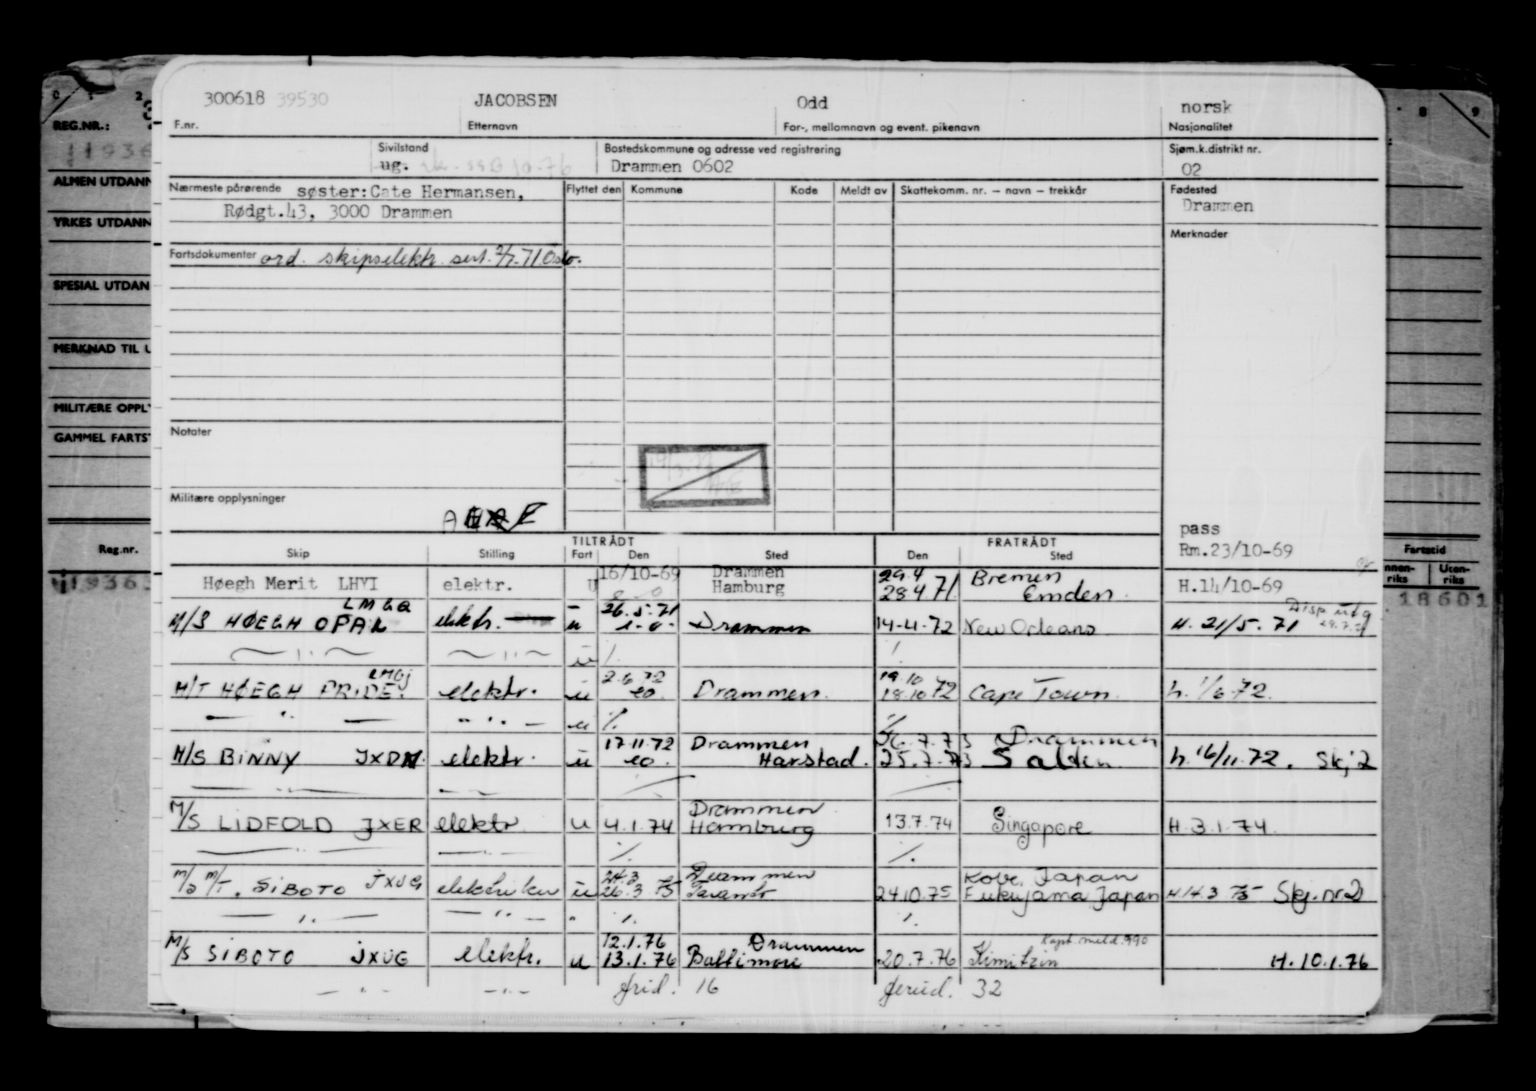 300618 39530 JACOBSEN Odd norsk
F.nr. Etternavn For-, mellomnavn og event. pikenavn Nasjonalitet
Sivilstand Bostedskommune og adresse ved registrering Sjøm.k.distrikt nr.
ug. Drammen 0602 02
Nærmeste pårørende søster:Cate Hermansen, Flyttet den Kommune Kode Meldt av Skattekomm. nr. – navn – trekkår Fødested
Rødgt.43, 3000 Drammen Drammen
Merknader
Fartsdokumenter ord. skipselektr. sert. 2/7-71 Oslo.
Notater
Militære opplysninger
pass
Rm.23/10-69
TILTRÅDT FRATRÅDT
Skip Stilling Fart Den Sted Den Sted
16/10-69 Drammen 29.4 Bremen
Høegh Merit LHYI elektr. U Hamburg 28 4 71. Emden H.14/10-69
LMGQ 26.5.71
M/S HØEGH OPAL elektr. u Drammen 14-4-72 New Orleans H. 21/5.71
LMGJ 2.6.72 19.10
M/T HØEGH PRIDE. elektr. u eo. Drammen. 18.10 72 Cape Town. h. 1/6-72.
17.11.72 Drammen 26.7.73 Drammen
M/S BINNY JXDM. elektr. u eo. Harstad. 25.7.73 h. 16/11.72. Skj 2
Drammen
M/S LIDFOLD JXER elektr u 4.1.74 Hamburg 13.7.74 Singapore H.3.1.74.
24.3 Drammen Kobe, Japan
M/S M/T. SIBOTO JXUG elektriker u 26.3 75 24.10.75 Fukujama Japan H 14.3 75 Skj. nr 2
12.1.76 Drammen Kapt. meld. 990
M/S SIBOTO JXUG elektr. u 13.1.76 Baltimore 20.7.76 Kimitzin H. 10.1.76
frid. 16 feried. 32
REG.NR.:
11936
ALMEN UTDANN
YRKES UTDANN
SPESIAL UTDAN
MERKNAD TIL U
MILITÆRE OPPL
GAMMEL FARTS
Reg.nr.
119363
8 9
Fartstid
nnen-riks Uten-riks
18601